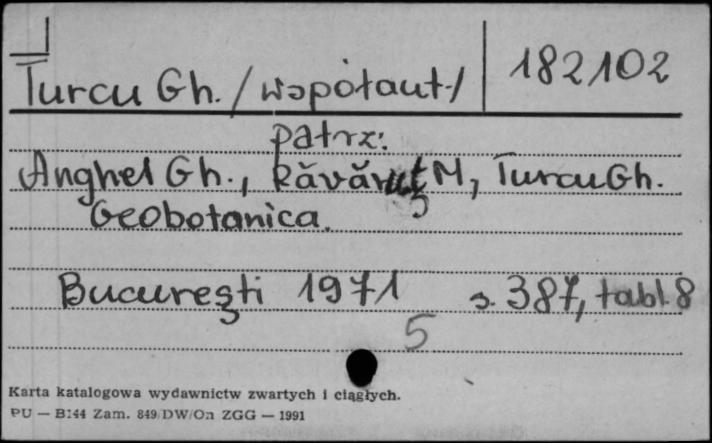 Turcu Gh. /współaut./ 182102
patrz:
Anghel Gh., Răvăruț M, Turcu Gh.
Geobotanica.
București 1971 s. 387, tabl. 8
5
Karta katalogowa wydawnictw zwartych i ciągłych.
PU — B144 Zam. 849/DW/On ZGG — 1991